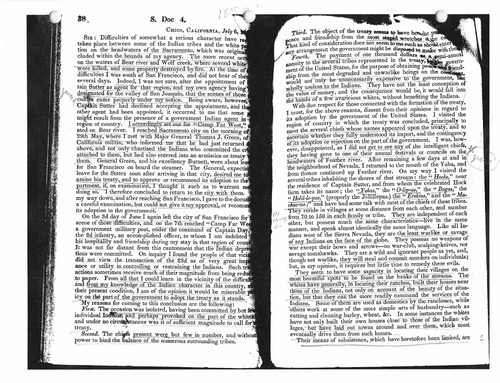 38 S. Doc 4.
CHICO, CALIFORNIA, July 6,
SIR: Difficulties of somewhat a serious character have
taken place between some of the Indian tribes and the white
tion on the headwaters of the Sacramento, which was
cluded within the bounds of my agency. The more recent
on the waters of Bear river and Wolf creek, where several white
were killed, and some property destroyed by fire. At the time of
difficulties I was south of San Francisco, and did not hear of the
several days. Indeed, I was not sure, after the appointment of
tain Sutter as agent for that region; and my own agency having
designated for the valley of San Joaquin, that the scenes of those
came properly under my notice. Being aware, however,
Captain Sutter had declined accepting the appointment, and that
other agent had been appointed, it occurred to me that some
might result from the presence of a government Indian agent in
region of country. I accordingly set out for "Camp Far West,"
ated on Bear river. I reached Sacramento city on the morning of
29th May, where I met with Major General Thomas J. Green, of
California militia, who informed me that he had just returned from
above, and not only chastised the Indians who committed the
attached to them, but had also entered into an armistice or treaty
them. General Green, and his excellency Burnett, were about
for San Francisco on board the steamer. The general, expecting
leave for the States soon after arriving in that city, desired me to
amine his treaty, and to approve or recommend its adoption to
partment, if, on examination, I thought it such as to warrant me
doing so. I therefore concluded to return to the city with them.
my way down, and after reaching San Francisco, I gave to the
a careful examination, but could not give it my approval, or recommend
its adoption to the government.
On the 3d day of June I again left the city of San Francisco for
scene of the difficulties; and on the 7th reached "Camp Far West,"
a government military post, under the command of Captain Day
2d infantry, an accomplished officer, to whom I am indebted for
his hospitality and friendship during my stay in that region of country.
It was not far distant from this cantonment that the Indian depreda-
tions were committed. On inquiry I found the people of that
did not view the transaction of the 23d as of very great import-
ance or utility in controlling or restraining the Indians. Such
actions sometimes receive much of their magnitude from being reduced
to paper. From all that I could learn in the vicinity of the treaty,
and from my knowledge of the Indian character in this country, and
their present condition, I am of the opinion it would be miserable
icy on the part of the government to adopt the treaty as it stands.
My reasons for coming to this conclusion are the following:
First. The occasion was isolated, having been committed by but few
individual Indians, and perhaps provoked on the part of the whites,
and under no circumstances was it of sufficient magnitude to call for
treaty.
Second. The chiefs present were but few in number, and without
power to bind the balance of the numerous surrounding tribes.
Third. The object of the treaty seems to have been
ance and friendship from the most stupid wretches
That kind of consideration does not seem to me such as should enter
any arrangement the government might be disposed to make with them.
Fourth. The payment of one thousand dollars
annuity to the several tribes represented in the treaty,
ment of the United States, for the purpose of obtaining
ship from the most degraded and unwarlike beings on the
would not only be unnecessarily expensive to the government, but
wholly useless to the Indians. They have not the least conception of
the value of money, and the consequence would be, it would fall into
the hands of a few avaricious whites, without benefiting the Indians.
With due respect for those connected with the formation of the treaty,
I must, for the above reasons, dissent from their opinions in regard to
its adoption by the government of the United States. I visited the
region of country in which the treaty was concluded, principally to
meet the several chiefs whose names appeared upon the treaty, and to
ascertain whether they fully understood its import, and the contingency
of its adoption or rejection on the part of the government. I was, how-
ever, disappointed, as I did not get to see any of the intelligent chiefs,
they having gone to one of their annual festivals or councils on the
headwaters of Feather river. After remaining a few days at and in
the neighborhood of Nevada, I returned to the mouth of the Yuba, and
from thence continued up Feather river. On my way I visited the
several tribes inhabiting the shores of that stream: the "Hocks," near
the residence of Captain Sutter, and from whom the celebrated Hock
farm takes its name; the "Yubas," the "Olippas," the "Bogas," the
"Hold-lo-pis," (properly the Jolillepas,) the "Erskins," and the "Ma-
chucnas;" and have had some talk with most of the chiefs of these tribes.
They reside in villages at some distance from each other, and number
from 70 to 150 in each family or tribe. They are independent of each
other, but possess much the same characteristics—live in the same
manner, and speak almost identically the same language. Like all In-
dians west of the Sierra Nevada, they are the least warlike or savage
of any Indians on the face of the globe. They possess no weapons of
war except their bows and arrows—no war-club, scalping-knives, nor
savage tomahawks. They are a wild and ignorant people as yet, and,
though not warlike, they will steal and commit murders on individuals;
but, in my opinion, it requires but little time to remedy these evils.
They seem to have some sagacity in locating their villages on the
most beautiful spots to be found on the banks of the streams. The
whites have generally, in locating their ranchos, built their houses near
those of the Indians, not only on account of the beauty of the situa-
tion, but that they can the more readily command the services of the
Indians. Some of them are used as domestics by the rancheros, while
others work at some of the more simple arts of husbandry—such as
cutting and cleaning barley, wheat, &c. In some instances the whites
have not only built their own houses close to those of the Indian vil-
lages, but have laid out towns around and over them, which must
eventually drive them from such homes.
Their means of subsistence, which have heretofore been limited, are